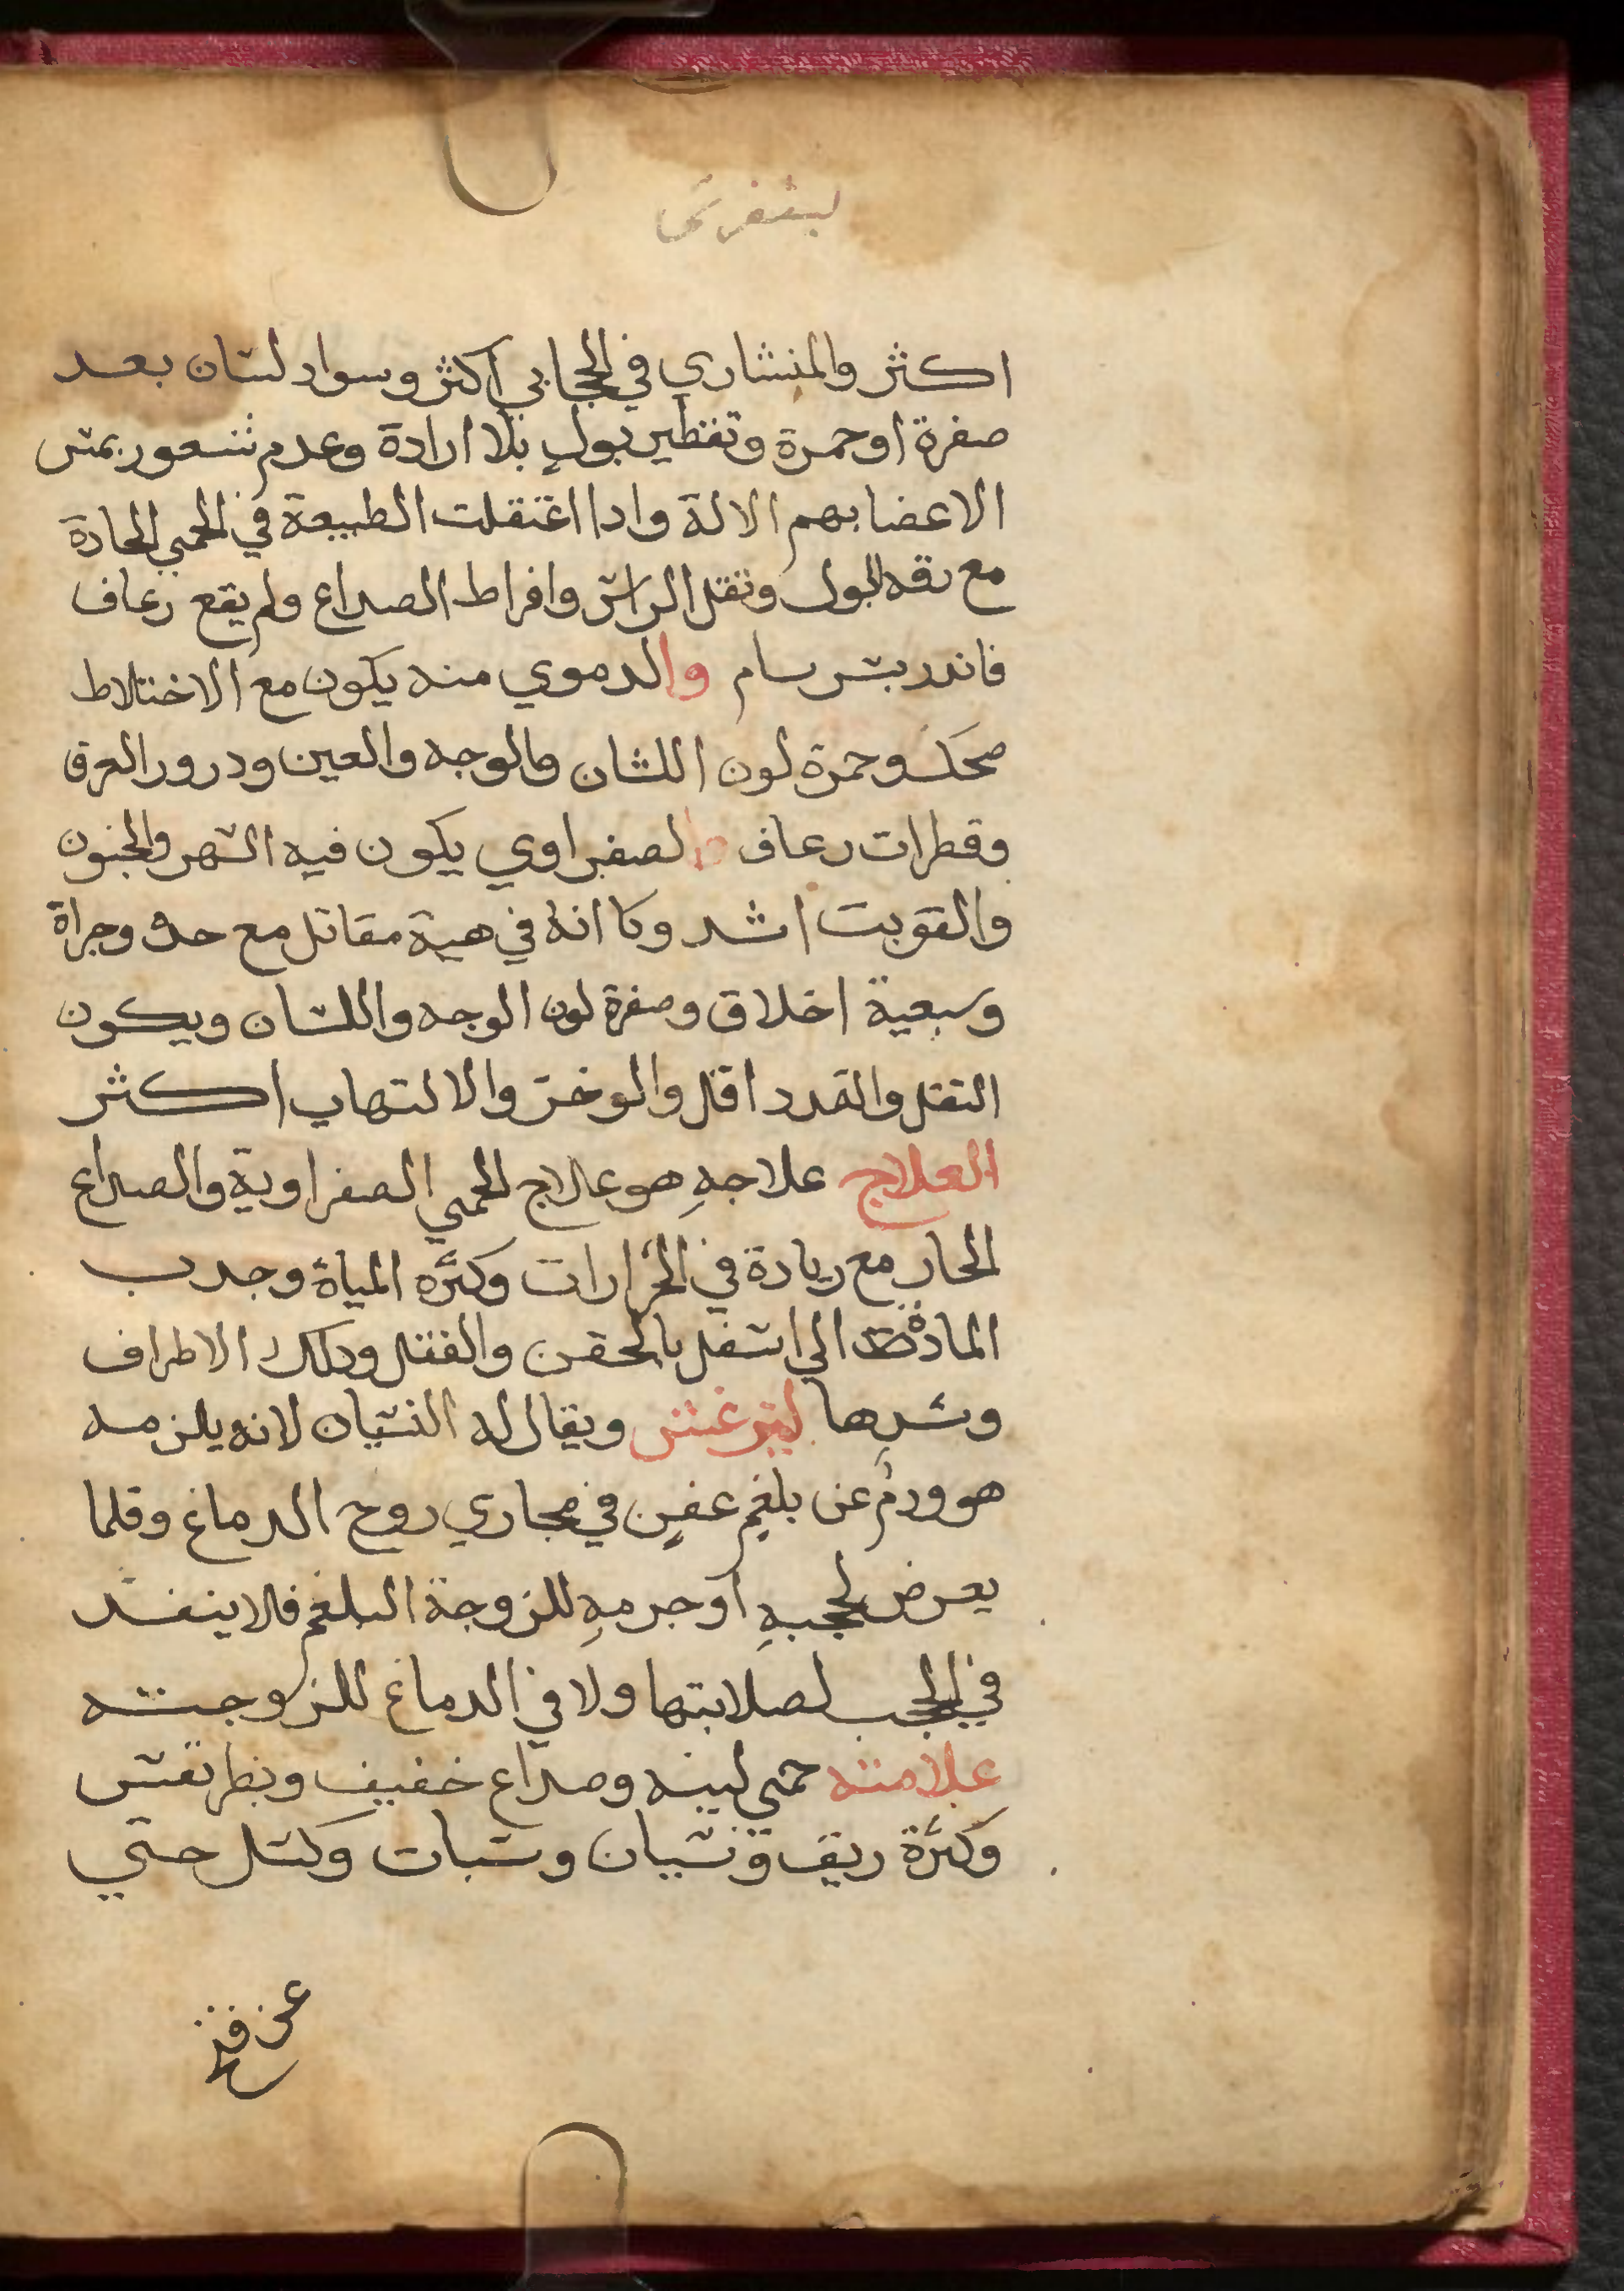 اكثر والمنشاري في الحجابي اكثر وسواد لسان بعد
صفرة اوحمرة وتقطير بول بلا ارادة وعدم شعور بمس
الاعضا بهم الالة وادا اعتقلت الطبيعة في الحمي الحادة
مع رقه البول وثقل الراس وافراط الصداع ولم يقع رعاف
فاندر بسرسام والدموي منه يكون مع الاختلاط
ضحك وحمرة لون اللسان والوجه والعين ودرور العرق
وقطرات رعاف والصفراوي يكون فيه السهر والجنون
والتوبت اشد وكا انه في هية مقاتل مع حده وجراة
وسبعية اخلاق وصفرة لون الوجه واللسان ويكون
الثقل والتمدد اقل والوخز والالتهاب اكثر
العلاج علاجهِ هو علاج الحمي الصفراوية والصداع
الحار مع زيادة في الحرارات وكثره المياة وجدب
المادة الي اسفل بالحقن والفتل ودلك الاطراف
وشدها ليترغس ويقال له النسيان لانه يلزمه
هو ورم عن بلغمٍ عفنٍ في مجاري روح الدماغ وقلما
يعرض لحجبهِ اوجرمهِ للزوجة البلغم فلا ينفد
في الحجب لصلابتها ولا في الدماغ للزوجته
علامته حمي لينه وصداع خفيف وبطر نفس
وكثرة ريق ونسيان وسبات وكسل حتي